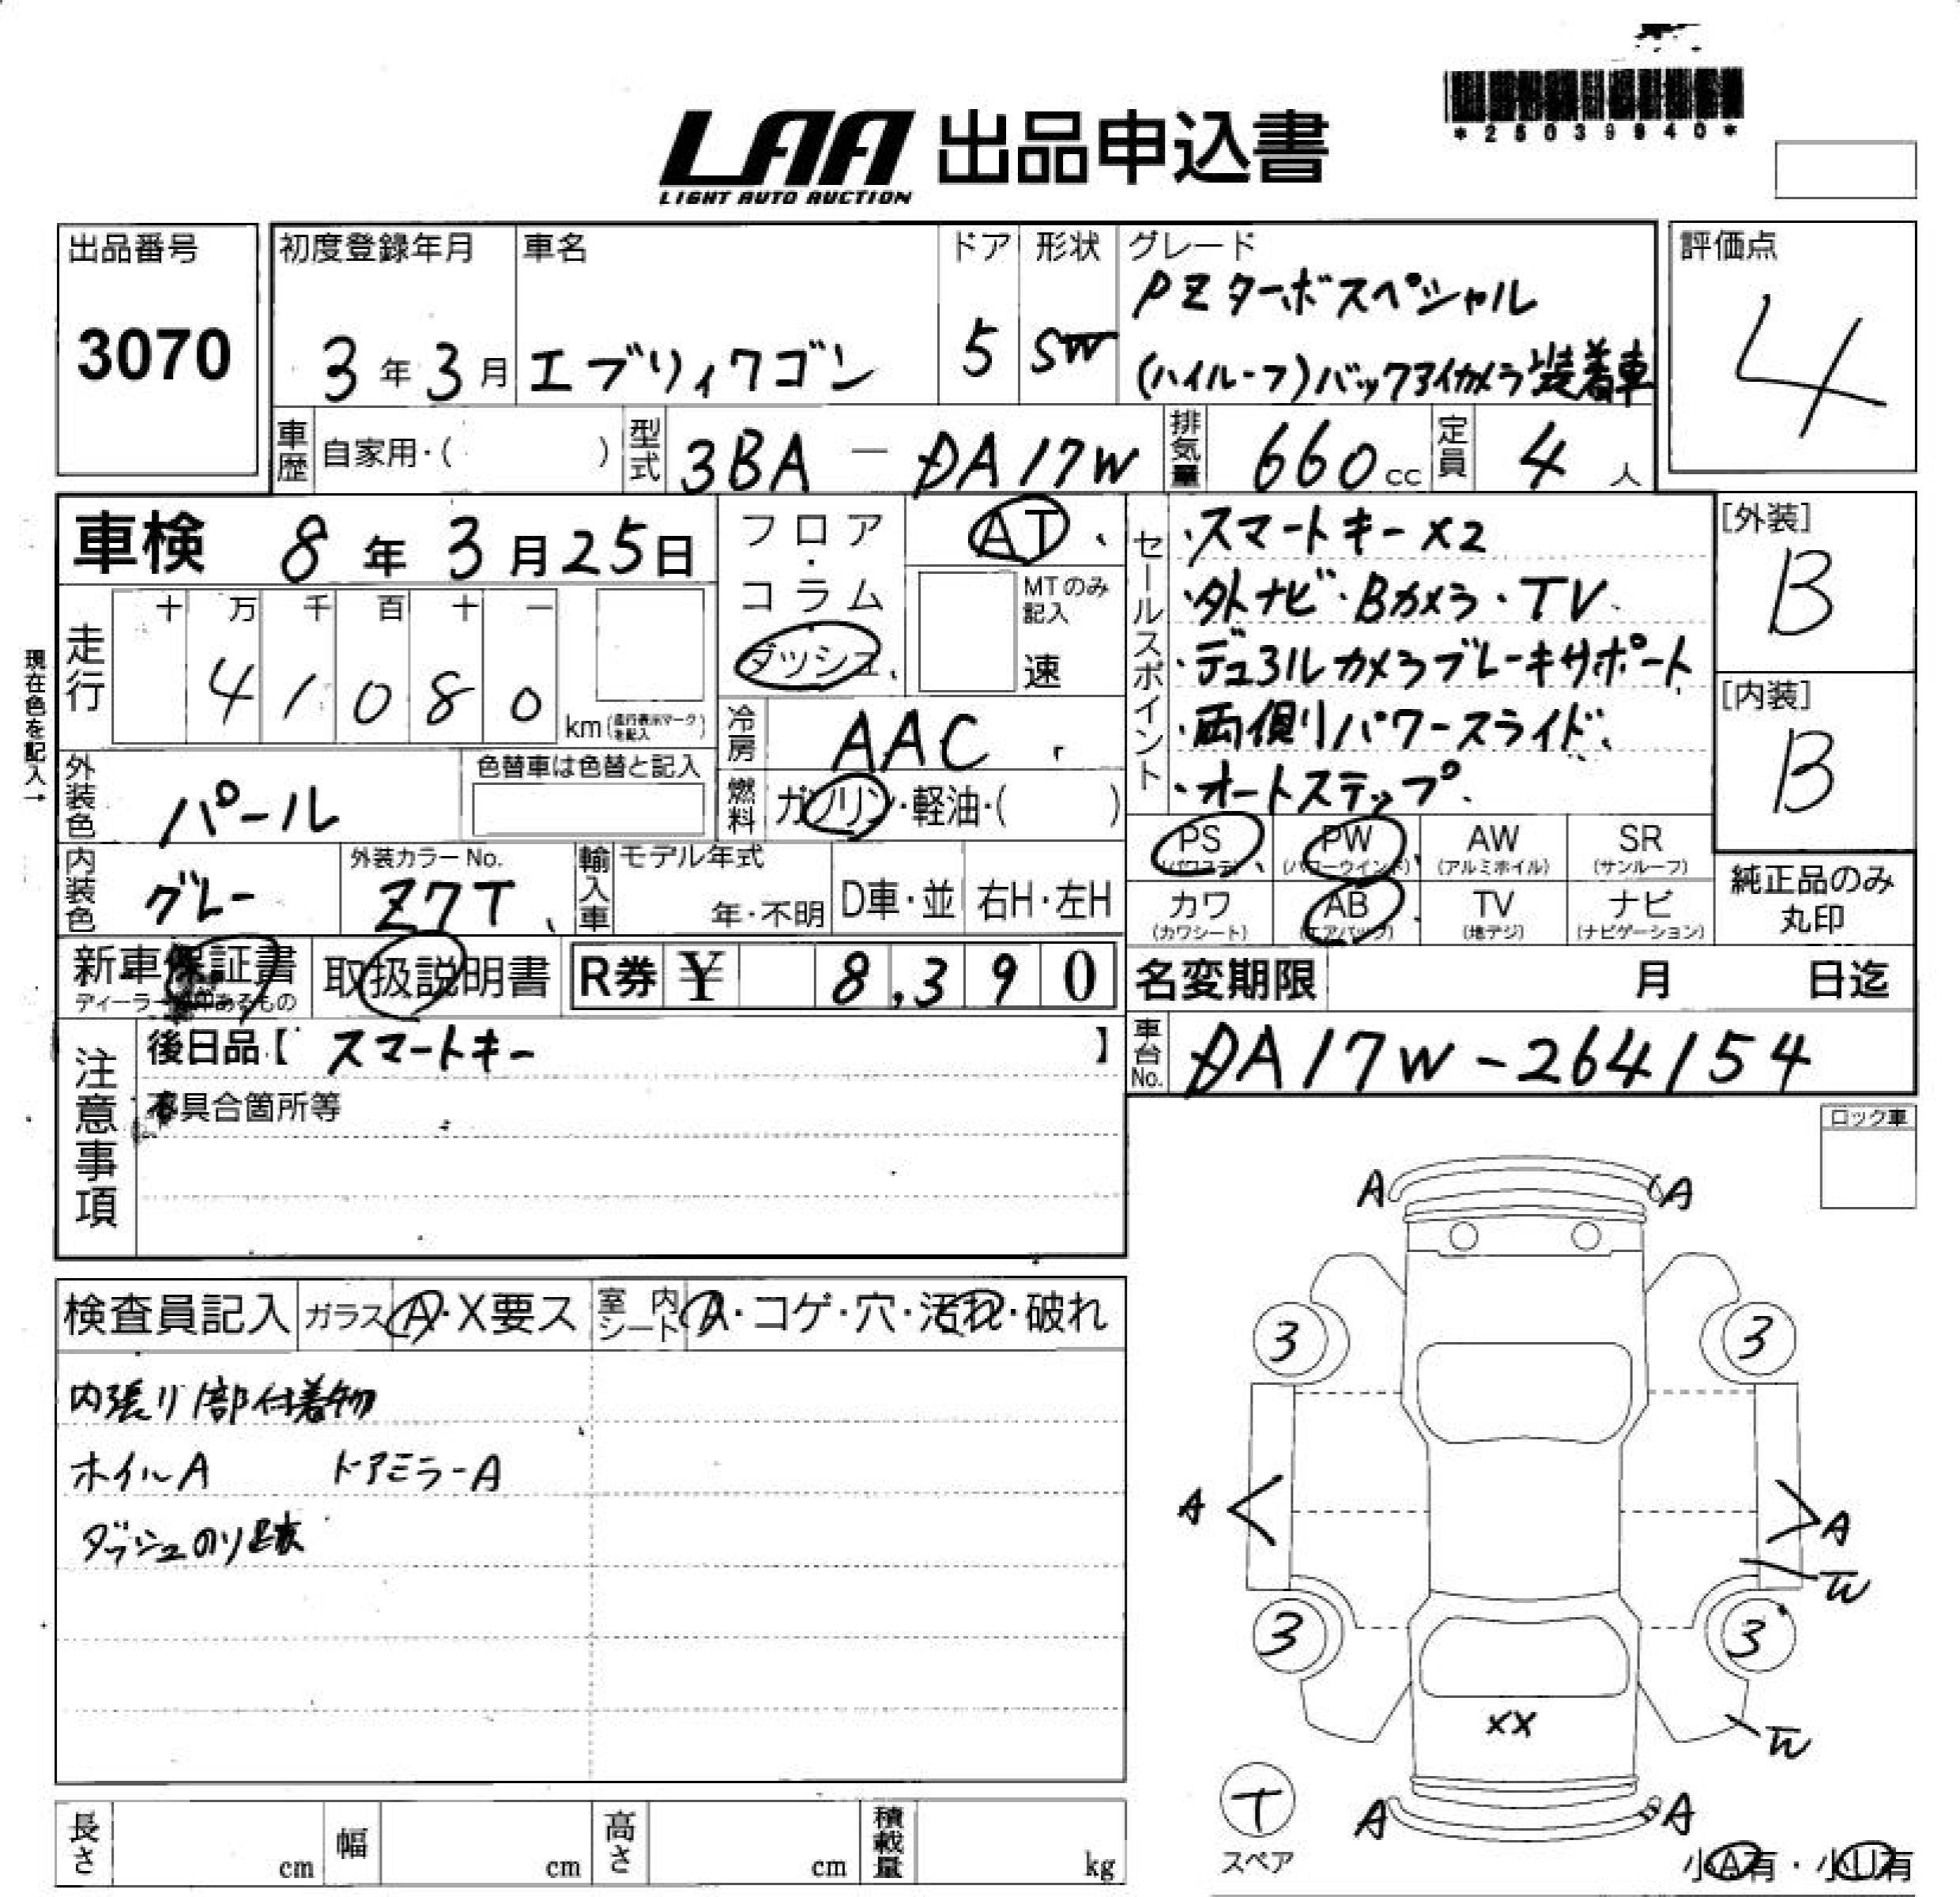 *25039940*
LAA 出品申込書
LIGHT AUTO AUCTION
出品番号
3070
初度登録年月
3年3月
車名
エブリィワゴン
ドア
5
形状
SW
グレード
PZターボスペシャル
(ハイルーフ)バックアイカメラ装着車
評価点
4
車歴
自家用・( )
型式
3BA - DA17W
排気量
660cc
定員
4人
車検 8年3月25日
フロア・コラム
ダッシュ
AT
MTのみ記入
速
走行
十 万 千 百 十 一
4 1 0 8 0
km(走行表示マークを記入)
現在色を記入→
外装色
パール
色替車は色替と記入
冷房
AAC
燃料
ガソリン・軽油・( )
内装色
グレー
外装カラーNo.
Z7T
輸入車
モデル年式
年・不明
D車・並
右H・左H
セールスポイント
・スマートキーX2
・外ナビ・Bカメラ・TV
・デュアルカメラブレーキサポート
・両側パワースライド
・オートステップ
[外装]
B
[内装]
B
PS
(パワステ)
PW
(パワーウインド)
AW
(アルミホイル)
SR
(サンルーフ)
カワ
(カワシート)
AB
(エアバッグ)
TV
(地デジ)
ナビ
(ナビゲーション)
純正品のみ
丸印
新車保証書
取扱説明書
R券 ¥ 8,390
名変期限 月 日迄
車台No.
DA17W-264154
注意事項
後日品【 スマートキー 】
不具合箇所等
ロック車
検査員記入
ガラス A・X要ス
室内シート A・コゲ・穴・汚れ・破れ
内張り部付着物
ホイルA ドアミラーA
ダッシュのり跡
A A
3 3
A A
W
3 3
XX
W
A A
T
スペア
小A有・小U有
長さ cm
幅 cm
高さ cm
積載量 kg